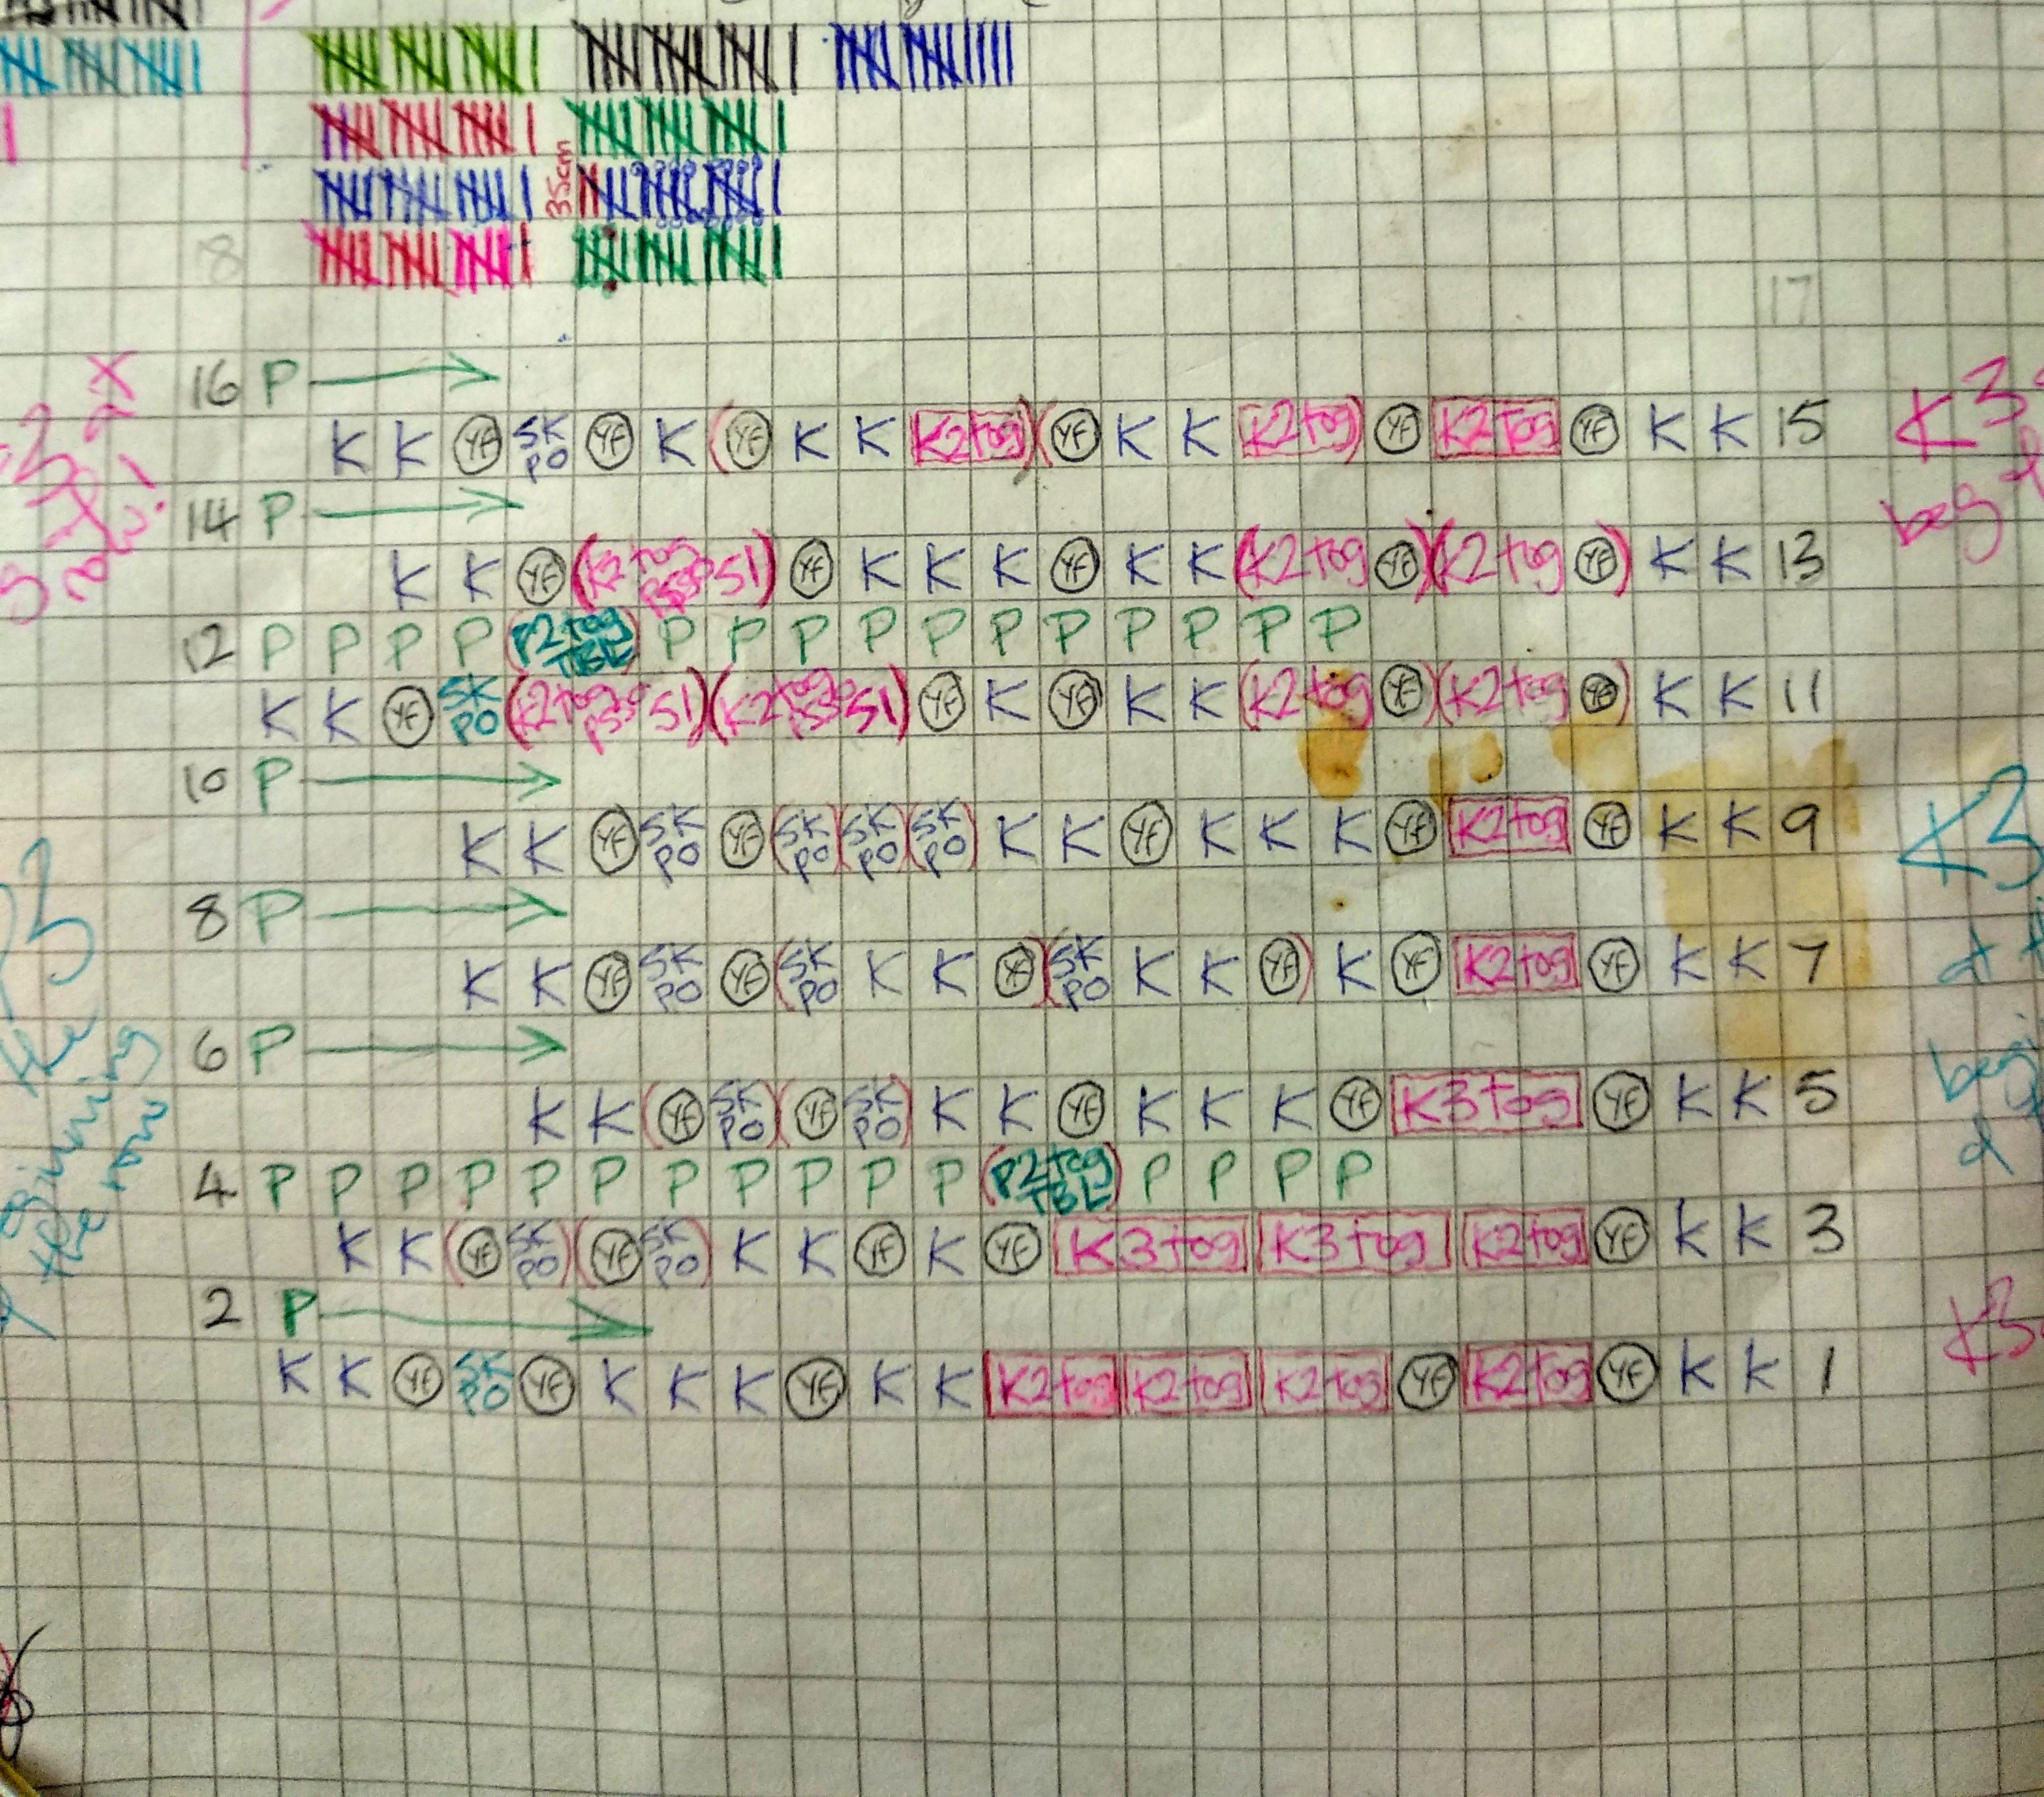 35cm
8
17
16 P
K K YF SK PO YF K (YF K K K2tog) (YF K K K2tog) YF K2tog YF K K 15
14 P
K K YF (K2tog psso S1) YF K K K YF K K (K2tog YF) (K2tog YF) K K 13
12 P P P P (P2tog TBL) P P P P P P P P P P P
K K YF SK PO (K2tog psso S1) (K2tog psso S1) YF K YF K K (K2tog YF) (K2tog YF) K K 11
10 P
K K YF SK PO YF (SK PO) (SK PO) (SK PO) K K YF K K K YF K2tog YF K K 9
8 P
K K YF SK PO YF (SK PO K K YF) (SK PO K K YF) K YF K2tog YF K K 7
6 P
K K (YF SK PO) (YF SK PO) K K YF K K K YF K3tog YF K K 5
4 P P P P P P P P P P P (P2tog TBL) P P P P
K K (YF SK PO) (YF SK PO) K K YF K YF K3tog K3tog K2tog YF K K 3
2 P
K K YF SK PO YF K K K YF K K K2tog K2tog K2tog YF K2tog YF K K 1
K3
beg
K3
K3
the
the row